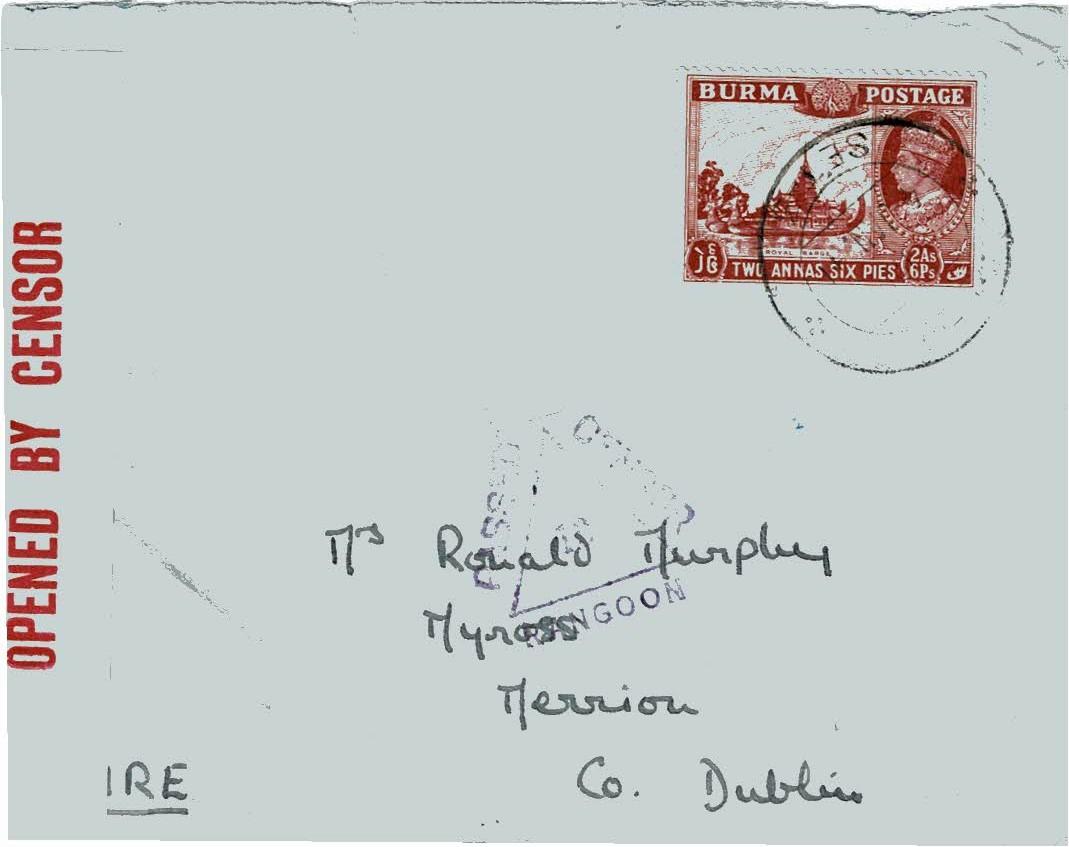 OPENED BY CENSOR
BURMA POSTAGE
ROYAL BARGE
TWO ANNAS SIX PIES
2As
6Ps
PASSED
RANGOON
Mrs Ronald Murphy
Myross
Merrion
Co. Dublin
IRE